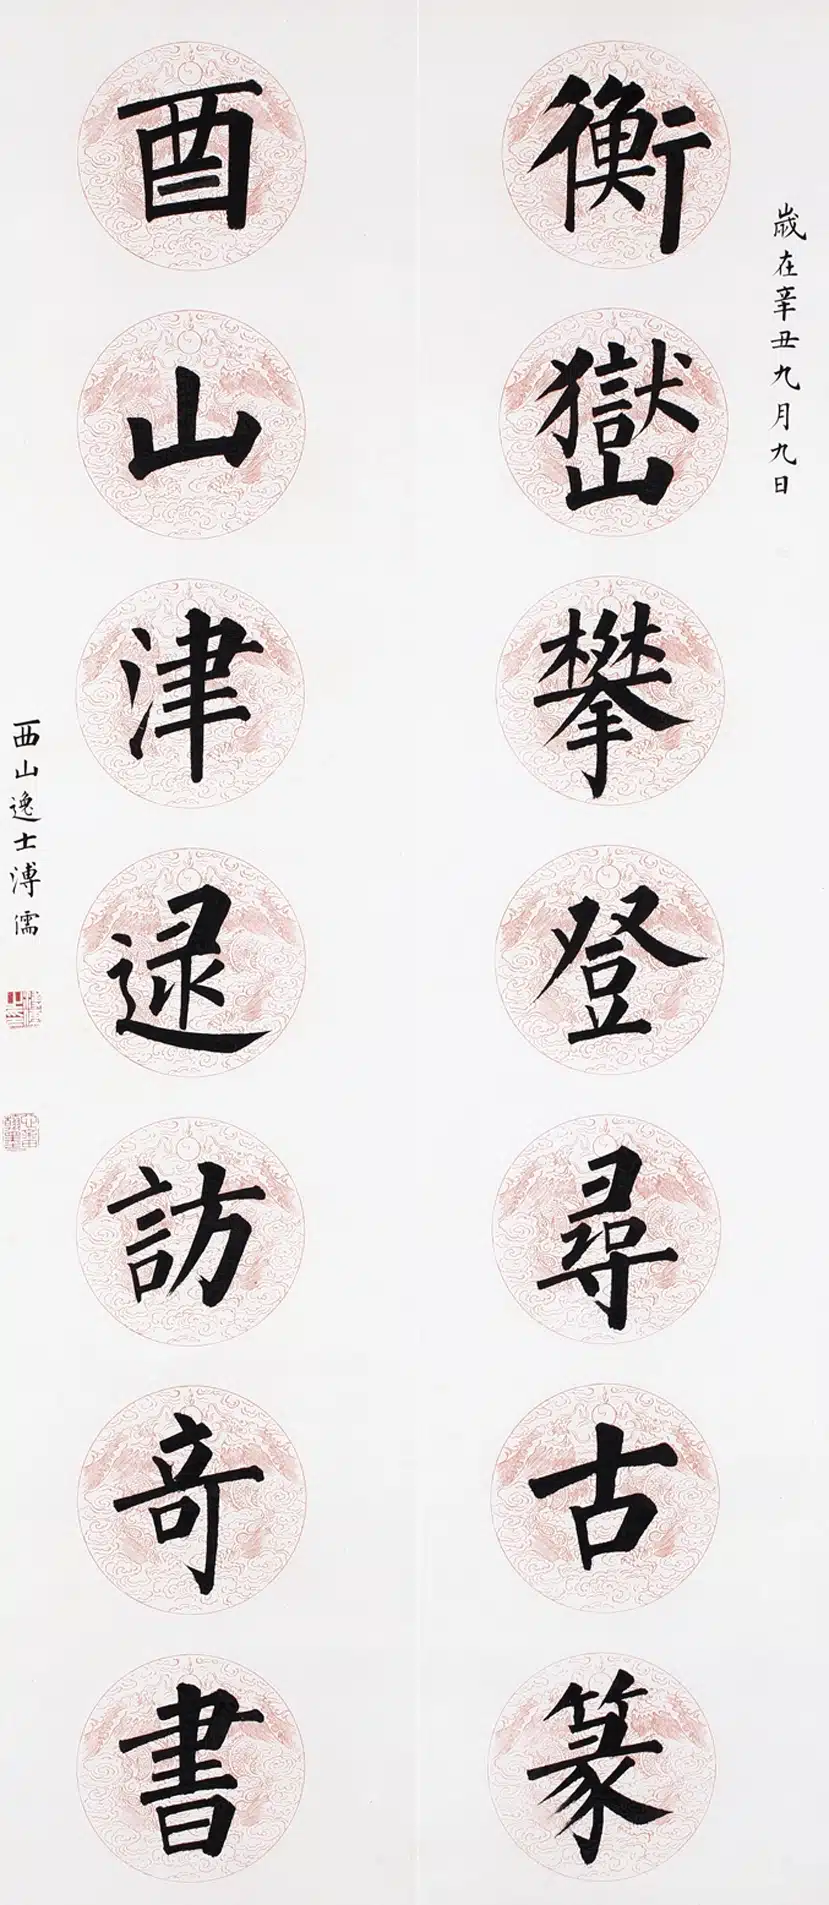 歲在辛丑九月九日
衡嶽攀登尋古篆
酉山津逮訪奇書
西山逸士溥儒